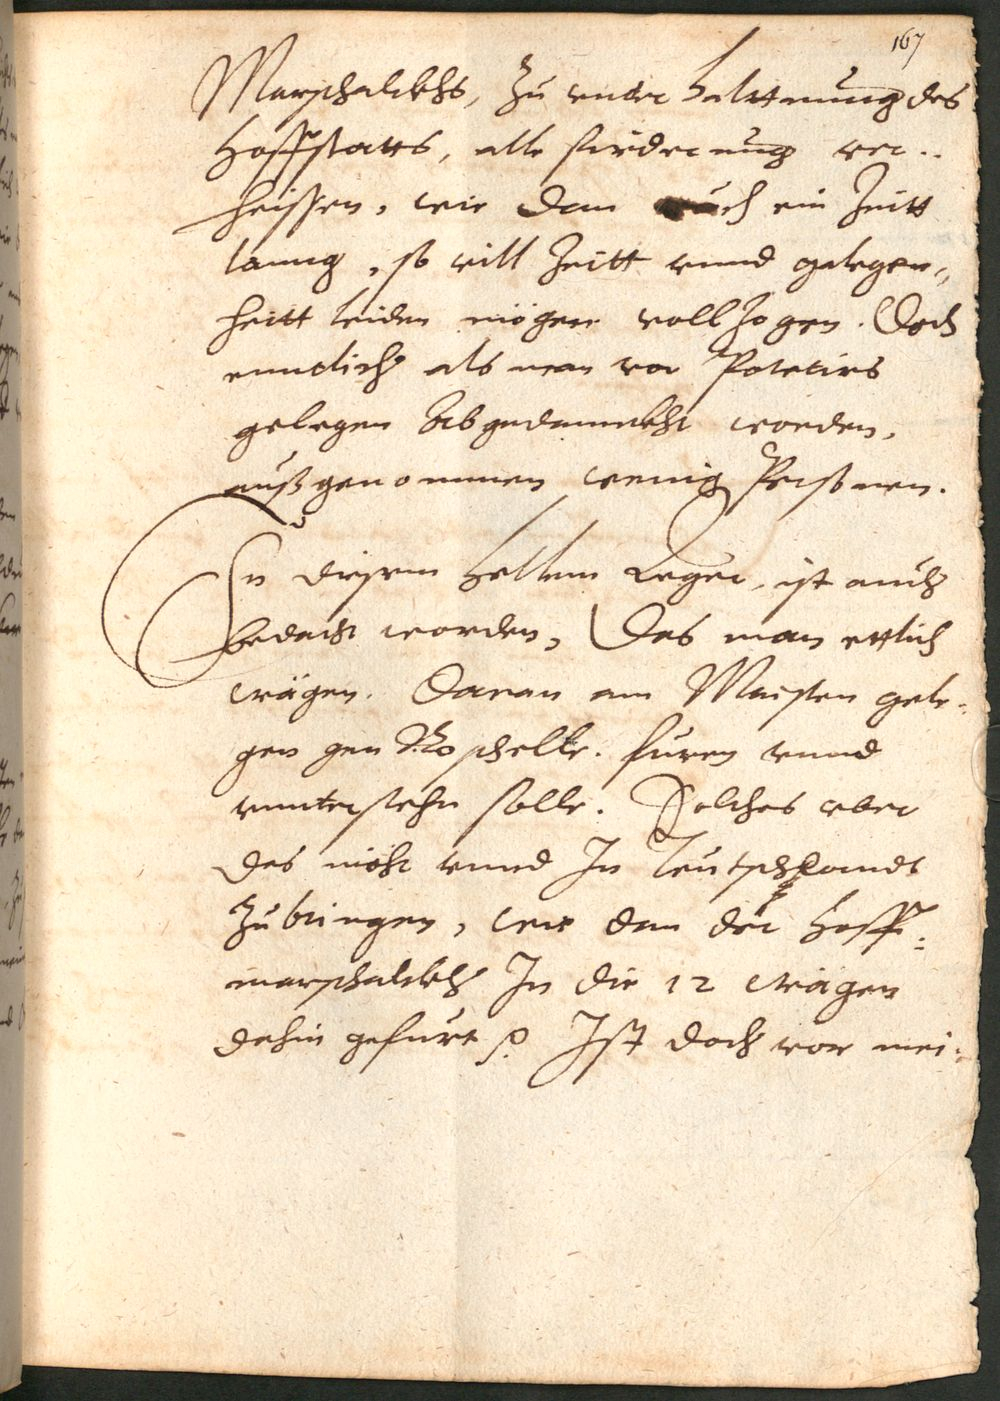 167
Marschalckhs, zu vnder haltnung des
Hoffstatts, alle fürderung ver..
heissen, wie dan auch ein Zeitt
lanng, so vill Zeitt vnnd gelegen„
heitt leiden mögen vollzogen. Doch
enntlich als man vor Poictirs
gelegen Abgedannckht worden,
außgenommen wenig Personen.
In diesem Leger, ist auch
bedacht worden, Das man ettlich
wägen. Daran am Maisten gele„
gen gen Roschelle. furen vnnd
vnnterstehn solle. Solches aber
des nicht vnnd In Teutschlandt
zubringen, wie dan der Hoff„
marschalckh In die 12 wägen
dahin gefurt p Ist doch vor mei„